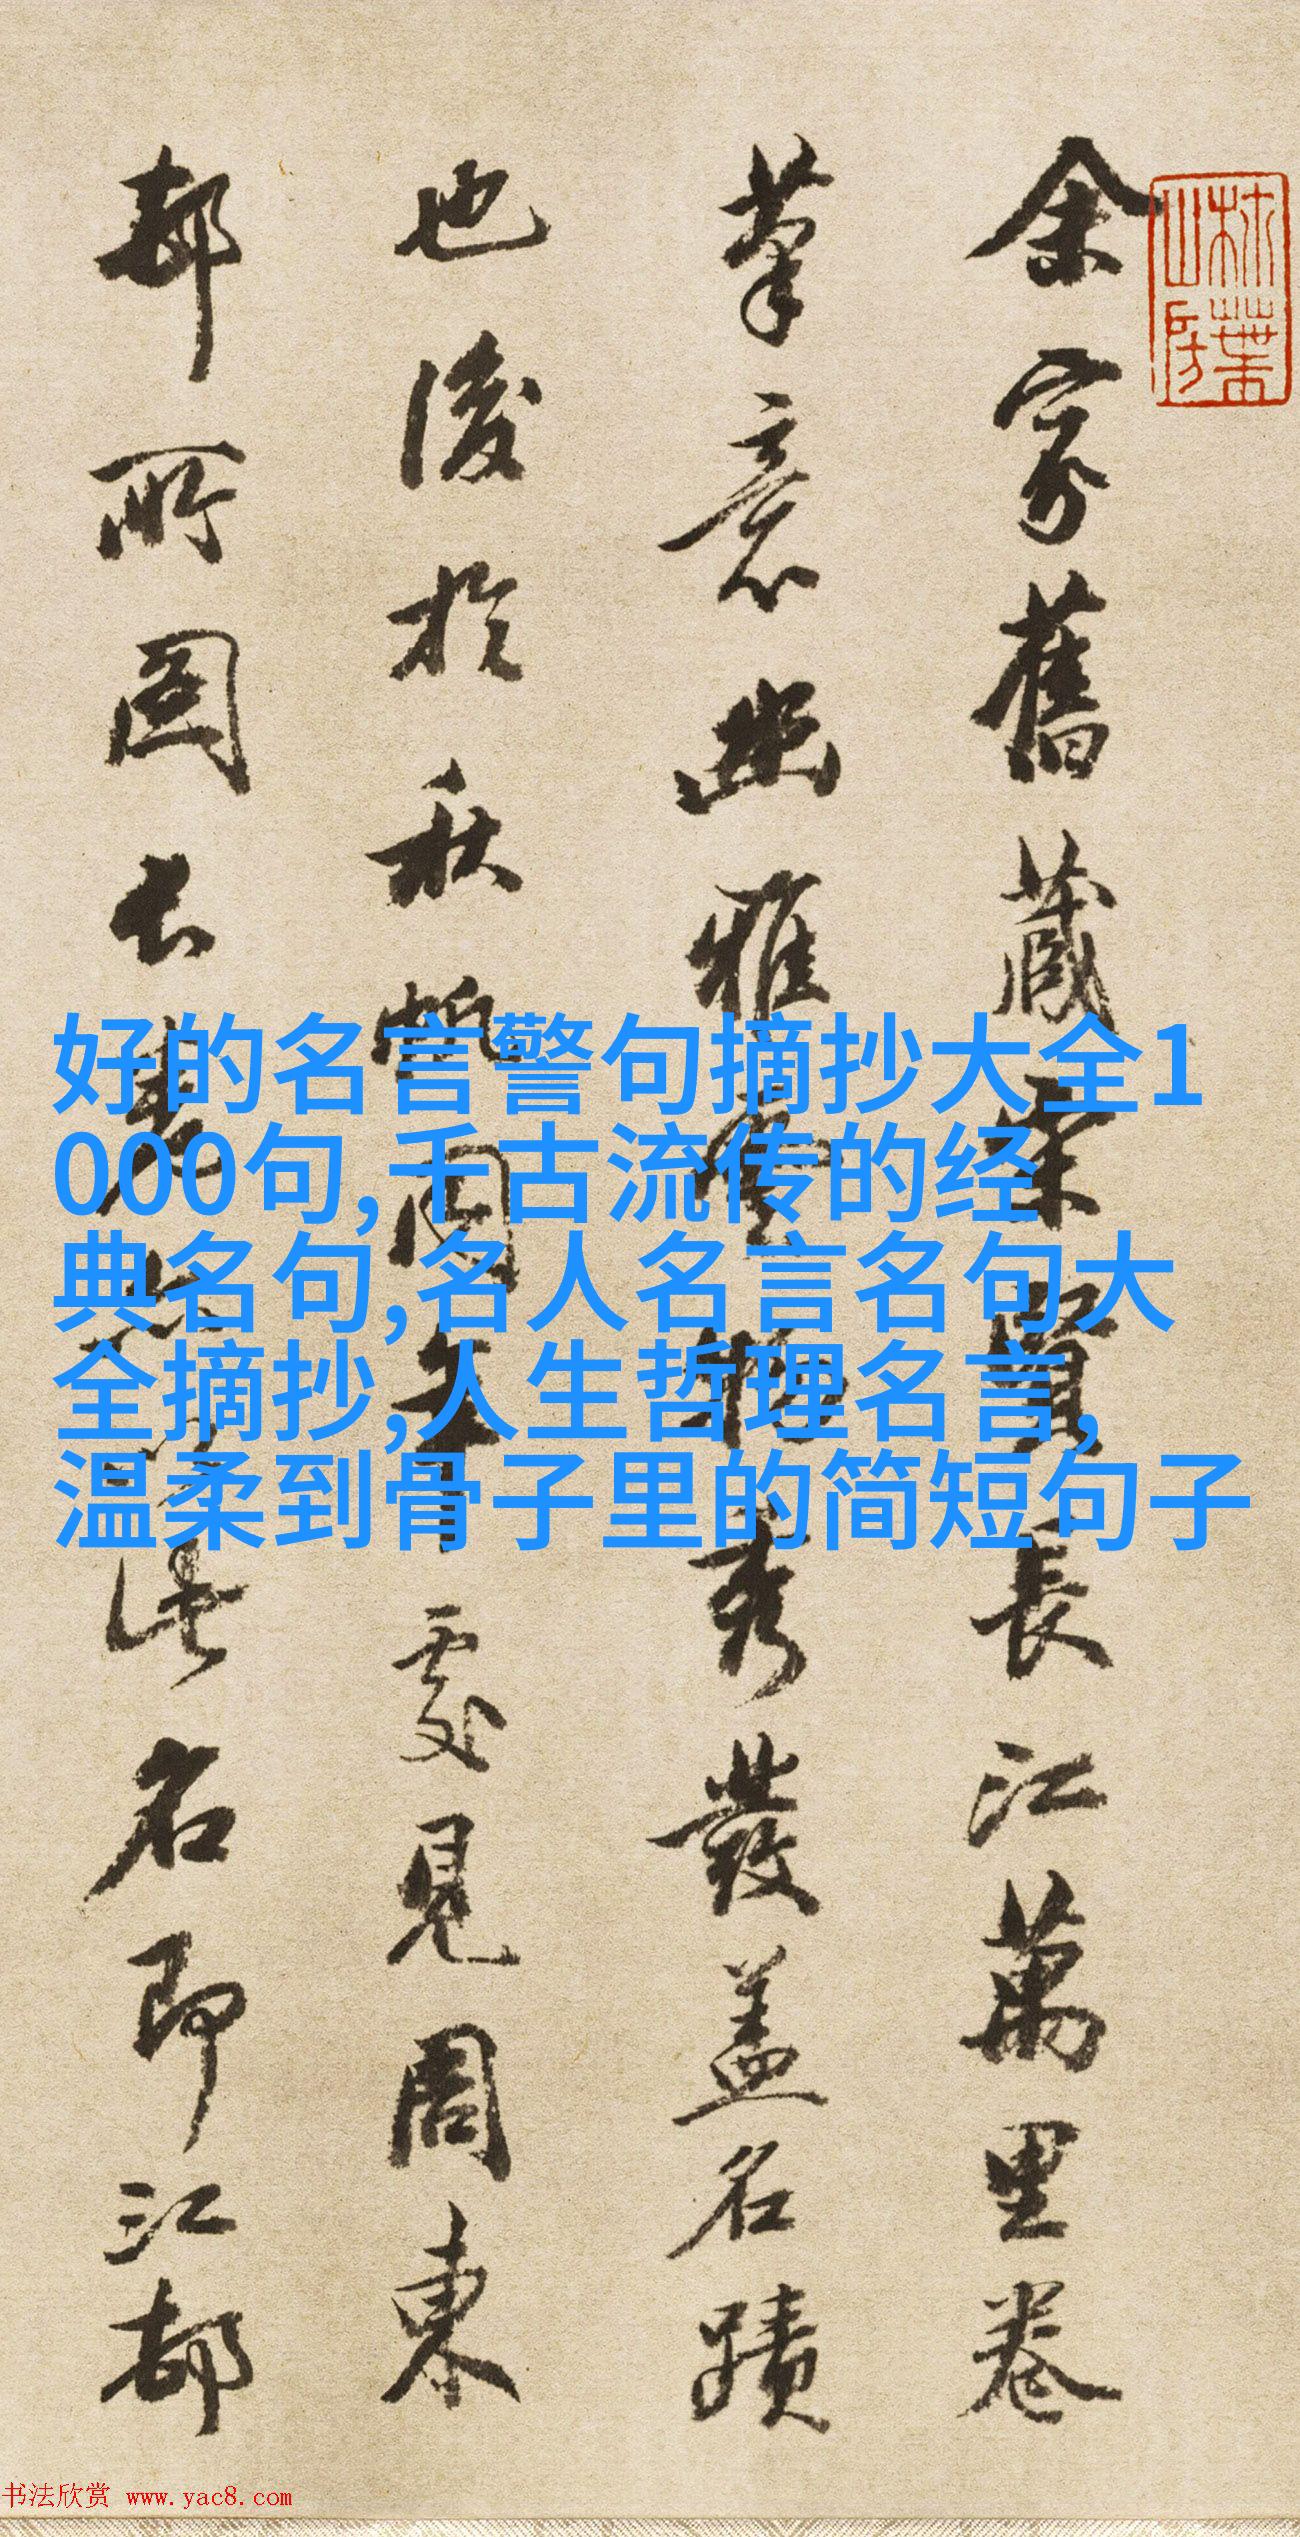 余家舊藏宋賢長江萬里卷
筆意幽雅秀發蓋名蹟
也後於秋帆閣處見周東
邨所圖長卷此名即江都
好的名言警句摘抄大全1
000句,千古流传的经
典名句,名人名言名句大
全摘抄,人生哲理名言,
温柔到骨子里的简短句子
书法欣赏 www.yac8.com